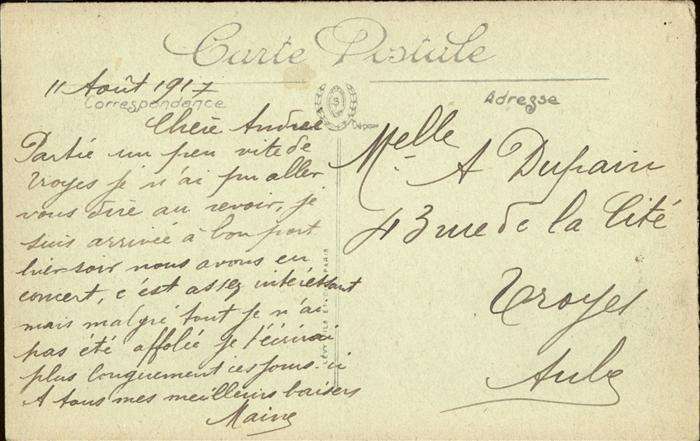 Carte Postale
11 Août 1917
Correspondance
Chère Andrée
Partie un peu vite de
Troyes je n'ai pu aller
vous dire au revoir, je
suis arrivée à bon port
hier soir nous avons eu
concert, c'est assez intéressant
mais malgré tout je n'ai
pas été affolée je t'écrirai
plus longuement ces jours-ci
A tous mes meilleurs baisers
Adresse
Melle A Dupain
43 rue de la Cité
Troyes
Aube